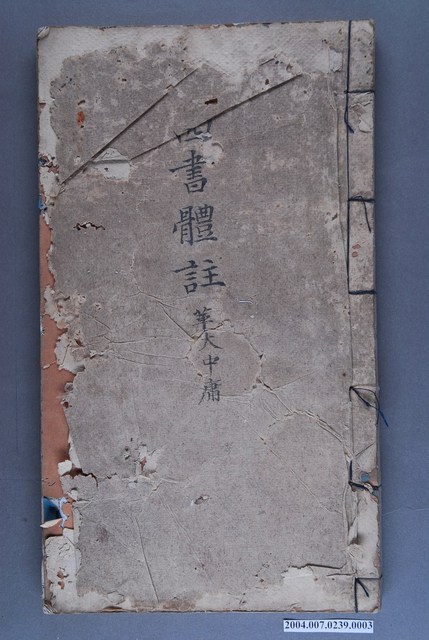 四書體註
大中庸
2004.007.0239.0003